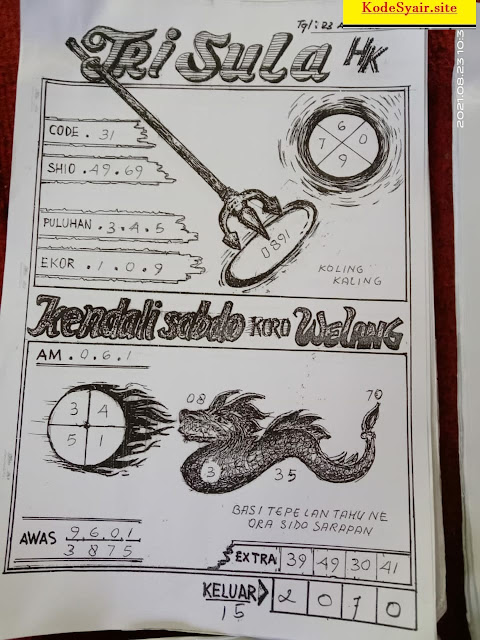 KodeSyair.site
Tgl: 23
TRI SULA HK
2021.08.23 10:3
CODE . 31
SHIO . 49 . 69
PULUHAN . 3 . 4 . 5
EKOR . 1 . 0 . 9
6
7 0
9
0891
KOLING
KALING
Kendali sabdo KORO WELANG
AM . 0 . 6 . 1
3 4
5 1
08
70
3
35
BASI TEPELAN TAHU NE
ORA SIDO SARAPAN
AWAS 9.6.0.1
3 8 7 5
EXTRA 39 49 30 41
KELUAR 2 0 1 0
15